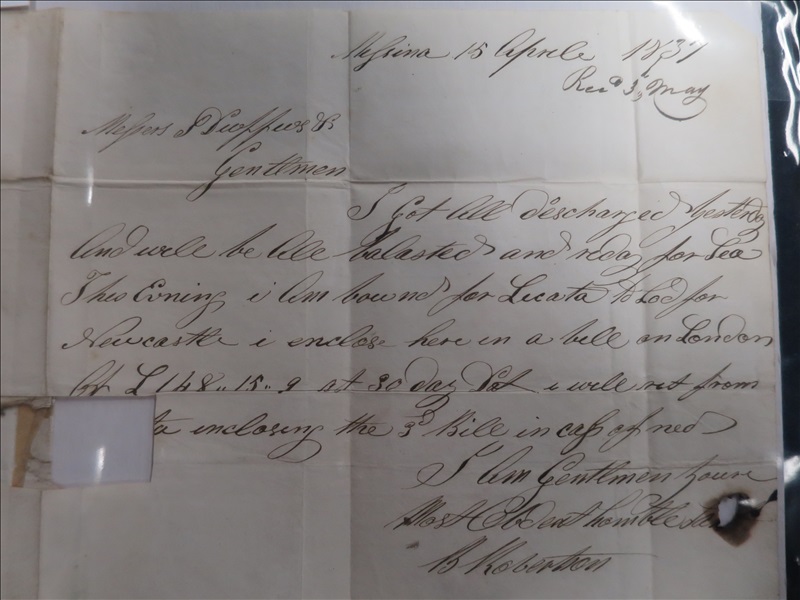 Messina 15 Aprele 1837
Recd 3d, May
Messers
Gentlmen
I Got All descharged Yesterday
And will be All balasted and redy for Sea
This Evning i Am bound for Licata to Lod for
Newcastle i enclose here in a bill on London
for L 148,, 15,, 9 at 30 day Dat i will rit from
ta enclosing the 3d Bill in cass of ned
I Am Gentlmen youre
Most Obdent homble Ser
B Robertson